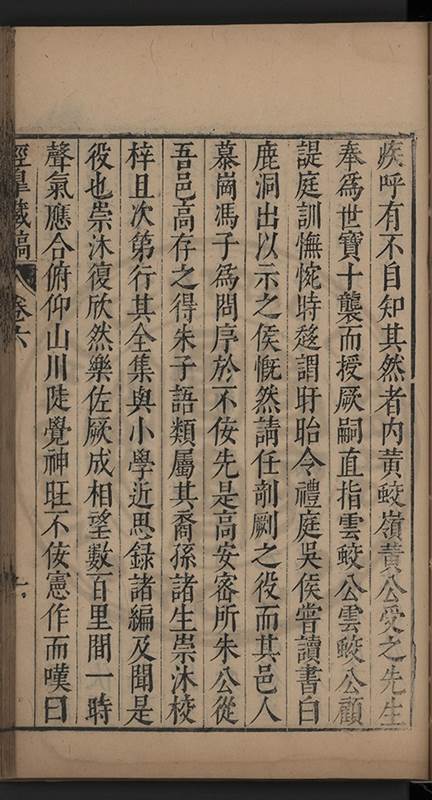 疾呼有不自知其然者內黃蛟嶺黃公受之先生
奉為世寶十襲而授厥嗣直指雲蛟公雲蛟公顧
諟庭訓憮惋時趍謂盱眙令禮庭吳侯嘗讀書白
鹿洞出以示之侯慨然請任剞劂之役而其邑人
慕崗馮子為問序於不佞先是高安密所朱公從
吾邑高存之得朱子語類屬其裔孫諸生崇沐校
梓且次第行其全集與小學近思錄諸編及聞是
役也崇沐復欣然樂佐厥成相望數百里間一時
聲氣應合俯仰山川陡覺神旺不佞憲作而嘆曰
涇臯藏稿
卷六
七